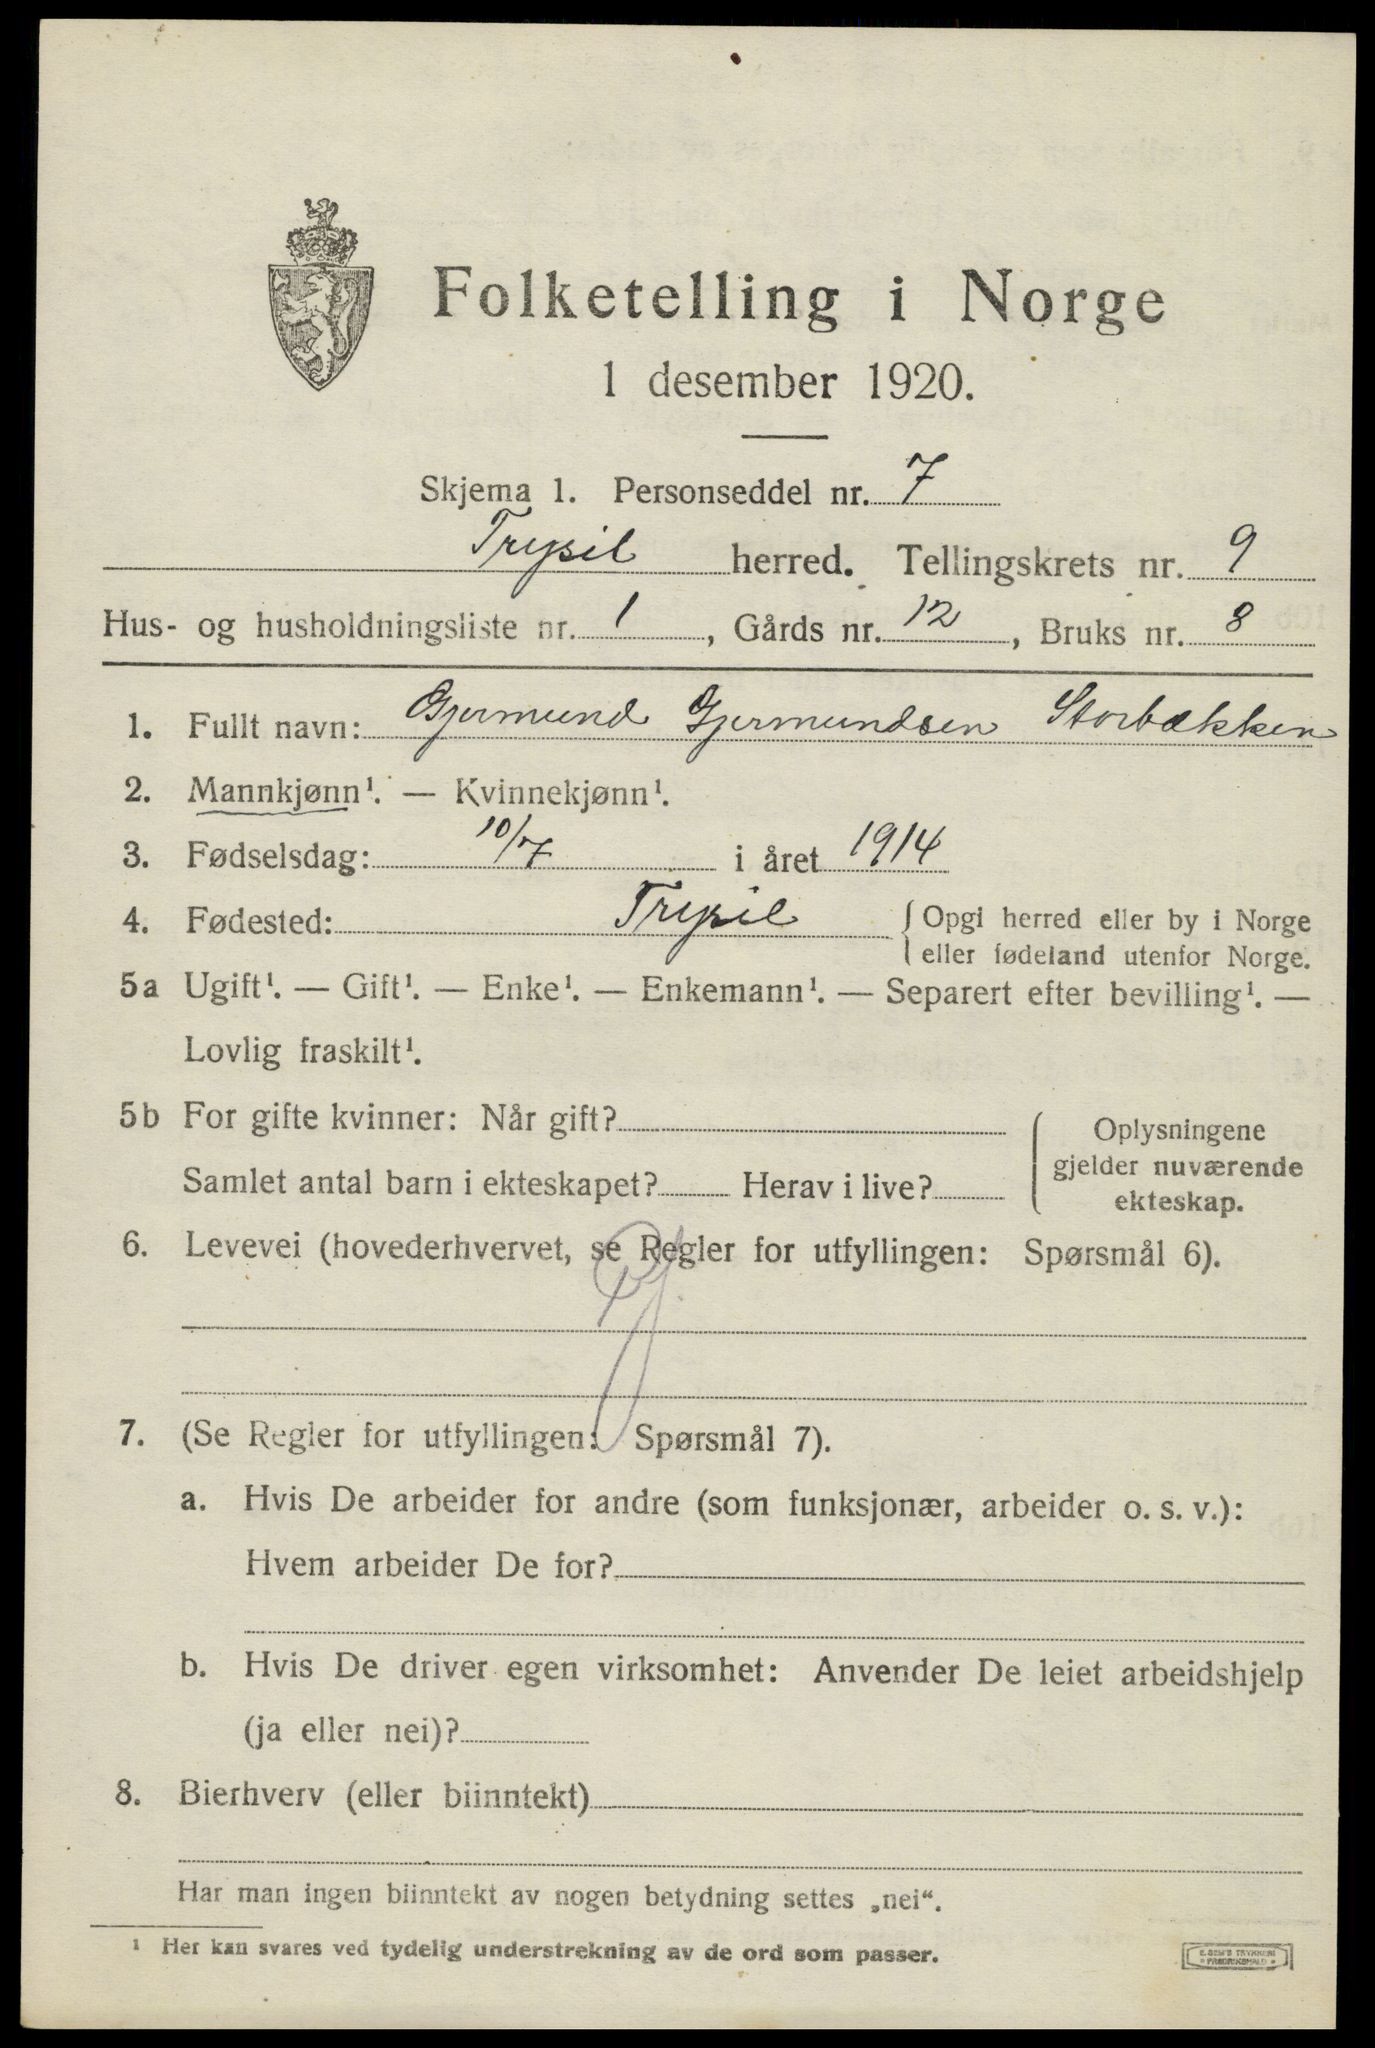 Folketelling i Norge
1 desember 1920.
Skjema 1. Personseddel nr. 7
Trysil herred. Tellingskrets nr. 9
Hus- og husholdningsliste nr. 1, Gårds nr. 12, Bruks nr. 8
1. Fullt navn: Gjermund Gjermundsen Storbækken
2. Mannkjønn¹. — Kvinnekjønn¹.
3. Fødselsdag: 10/7 i året 1914
4. Fødested: Trysil { Opgi herred eller by i Norge
eller fødeland utenfor Norge.
5a Ugift¹. — Gift¹. — Enke¹. — Enkemann¹. — Separert efter bevilling¹. —
Lovlig fraskilt¹.
5b For gifte kvinner: Når gift?
Samlet antal barn i ekteskapet? Herav i live?
Oplysningene
gjelder nuværende
ekteskap.
6. Levevei (hovederhvervet, se Regler for utfyllingen: Spørsmål 6).
7. (Se Regler for utfyllingen: Spørsmål 7).
a. Hvis De arbeider for andre (som funksjonær, arbeider o. s. v.):
Hvem arbeider De for?
b. Hvis De driver egen virksomhet: Anvender De leiet arbeidshjelp
(ja eller nei)?
8. Bierhverv (eller biinntekt)
Har man ingen biinntekt av nogen betydning settes „nei“.
¹ Her kan svares ved tydelig understrekning av de ord som passer.
E. SEM'S TRYKKERI
FREDRIKSHALD